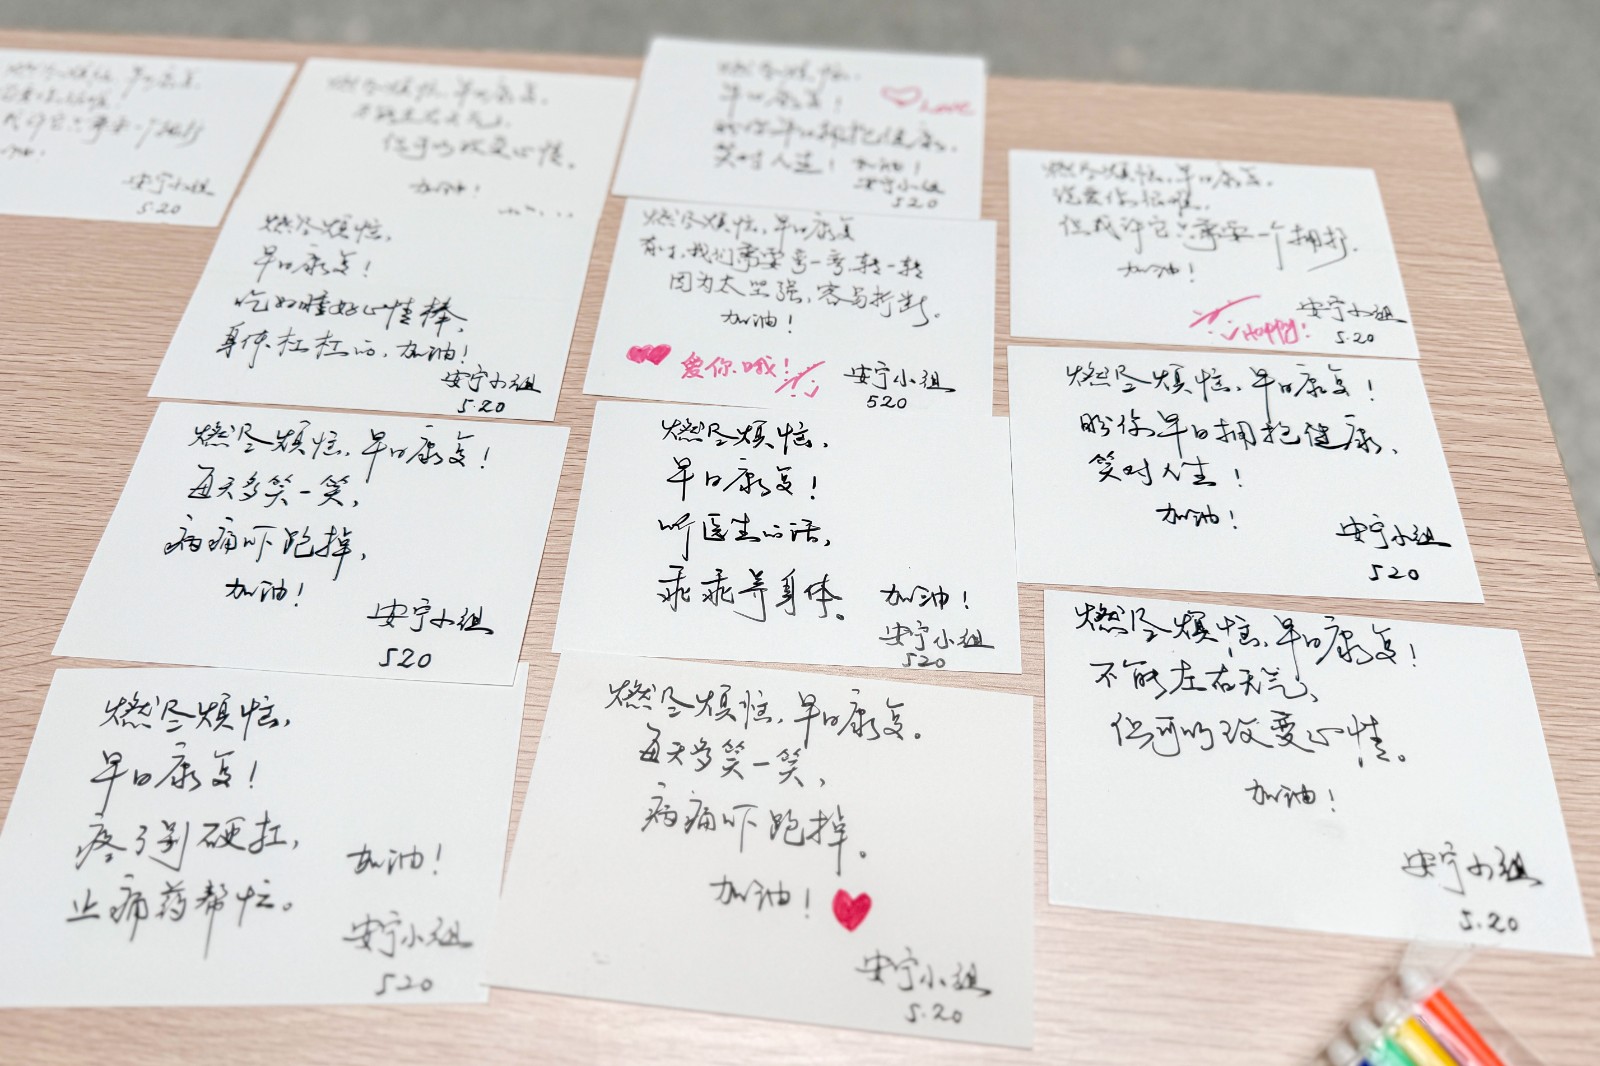 燃尽烦恼,早日康复.
加油!
安宁小组
5.20
燃尽烦恼,早日康复.
不能左右天气,
但可以改变心情。
加油!
燃尽烦恼,
早日康复!
Love
盼你早日拥抱健康,
笑对人生!加油!
安宁小组
520
燃尽烦恼,早日康复.
但或许它只需要一个拥抱.
加油!
安宁小组
Happy!
5.20
燃尽烦恼,
早日康复!
吃好睡好心情棒,
身体杠杠的,加油!
安宁小组
5.20
燃尽烦恼,早日康复
有时,我们需要弯一弯,转一转
因为太坚强,容易折断。
加油!
爱你哦!
安宁小组
520
燃尽烦恼,早日康复!
盼你早日拥抱健康,
笑对人生!
加油!
安宁小组
520
燃尽烦恼,早日康复!
每天多笑一笑,
病痛吓跑掉,
加油!
安宁小组
520
燃尽烦恼,
早日康复!
听医生的话,
乖乖养身体。
加油!
安宁小组
520
燃尽烦恼,早日康复!
不能左右天气,
但可以改变心情。
加油!
安宁小组
5.20
燃尽烦恼,
早日康复!
疼了别硬扛,
止痛药帮忙。
加油!
安宁小组
520
燃尽烦恼,早日康复。
每天多笑一笑,
病痛吓跑掉。
加油!
安宁小组
5.20